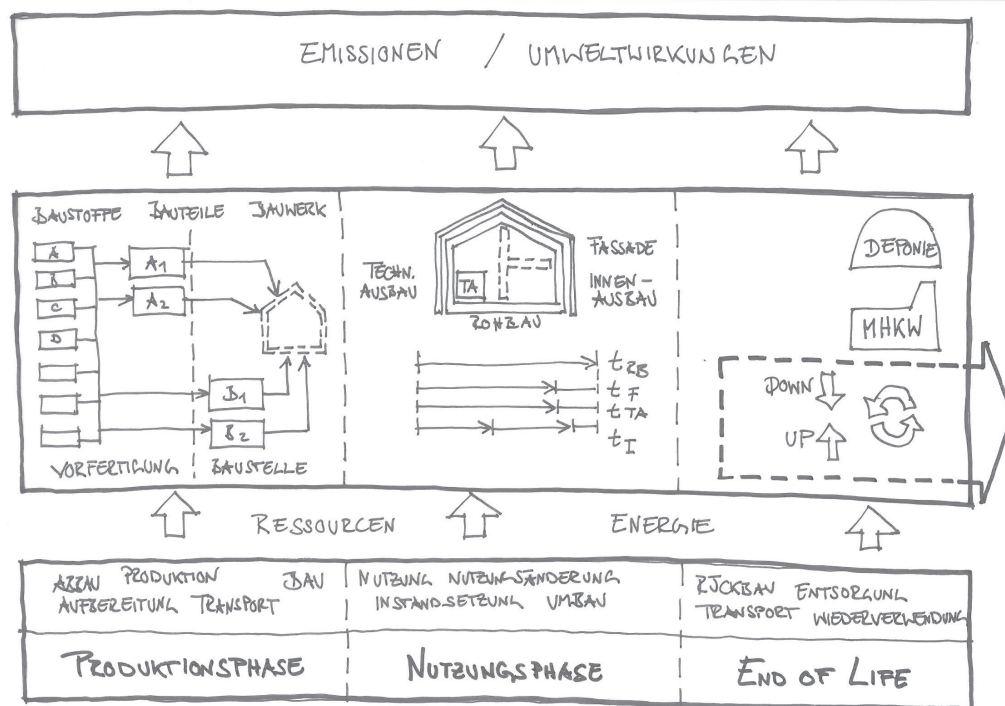 EMISSIONEN / UMWELTWIRKUNGEN
BAUSTOFFE BAUTEILE BAUWERK
A
B
C
D
A1
A2
B1
B2
VORFERTIGUNG BAUSTELLE
TECHN.
AUSBAU
TA
FASSADE
INNEN-
AUSBAU
ROHBAU
tRB
tF
tTA
tI
DEPONIE
MHKW
DOWN
UP
RESSOURCEN ENERGIE
ABBAU PRODUKTION BAU
AUFBEREITUNG TRANSPORT
NUTZUNG NUTZUNGSÄNDERUNG
INSTANDSETZUNG UMBAU
RÜCKBAU ENTSORGUNG
TRANSPORT WIEDERVERWENDUNG
PRODUKTIONSPHASE
NUTZUNGSPHASE
END OF LIFE